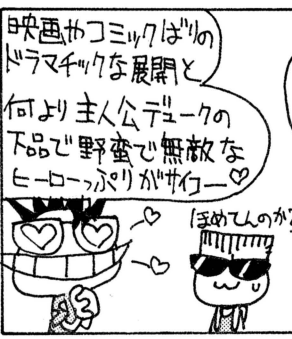 映画やコミックばりの
ドラマチックな展開と
何より主人公デュークの
下品で野蛮で無敵な
ヒーローっぷりがサイコー♡
ほめてんのか?